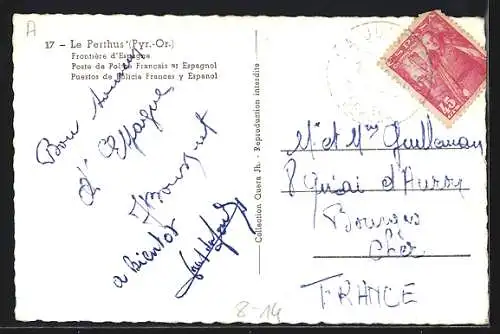 A
17 – Le Perthus (Pyr.-Or.)
Frontière d'Espagne
Poste de Police Français et Espagnol
Puestos de Policia Frances y Espanol
Bon
d'Espagne
a Bientot
Collection Quera Jh. - Reproduction interdite
45
Mr et Mme Guillemain
8 Quai d'Auron
Bourges
Cher
FRANCE
8-14